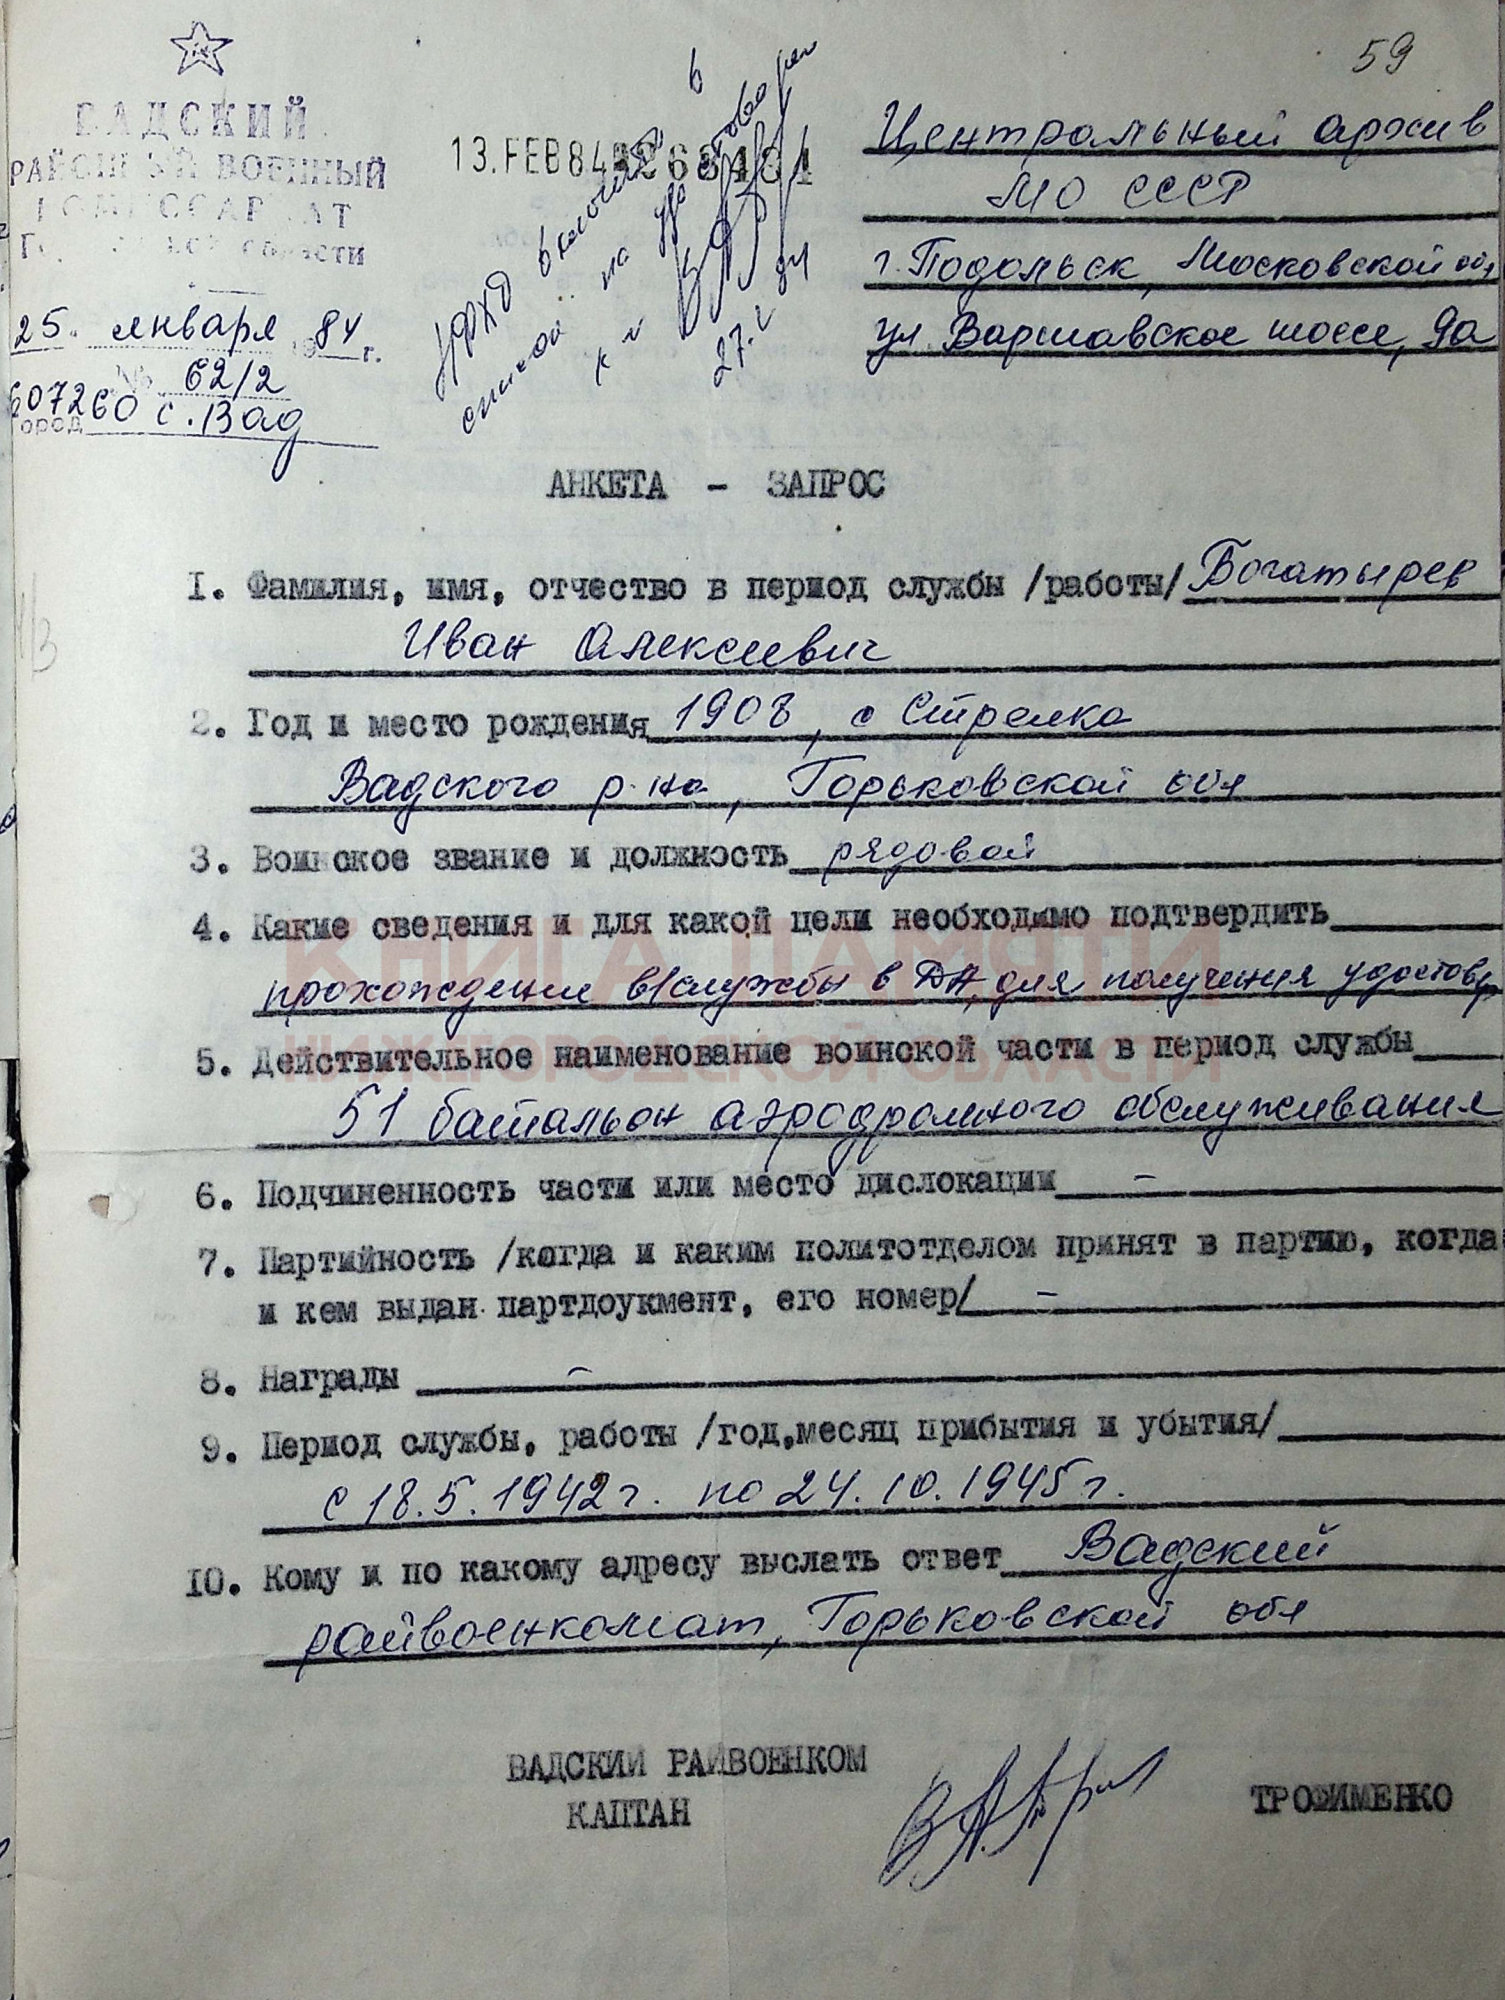 59
ВАДСКИЙ
РАЙОННЫЙ ВОЕННЫЙ
КОМИССАРИАТ
области
25. января 1984 г.
№ 62/2
607260 с. Вад
город
13.FEB84
включить в
список на удостоверен
27.V 84
Центральный архив
МО СССР
г. Подольск, Московской обл
ул Варшавское шоссе, 9а
АНКЕТА - ЗАПРОС
I. Фамилия, имя, отчество в период службы /работы/ Богатырев
Иван Алексеевич
2. Год и место рождения 1908, с Стрелка
Вадского р-на, Горьковской обл
3. Воинское звание и должность рядовой
4. Какие сведения и для какой цели необходимо подтвердить
прохождение в/службы в ДА, для получения удостовер
5. Действительное наименование воинской части в период службы
51 батальон аэродромного обслуживания
6. Подчиненность части или место дислокации -
7. Партийность /когда и каким политотделом принят в партию, когда
и кем выдан партдоукмент, его номер/ -
8. Награды -
9. Период службы, работы /год,месяц прибытия и убытия/
с 18.5.1942г. по 24.10.1945г.
10. Кому и по какому адресу выслать ответ Вадский
райвоенкомат, Горьковской обл
ВАДСКИЙ РАЙВОЕНКОМ
КАПТАН
ТРОФИМЕНКО
КНИГА ПАМЯТИ
НИЖЕГОРОДСКОЙ ОБЛАСТИ